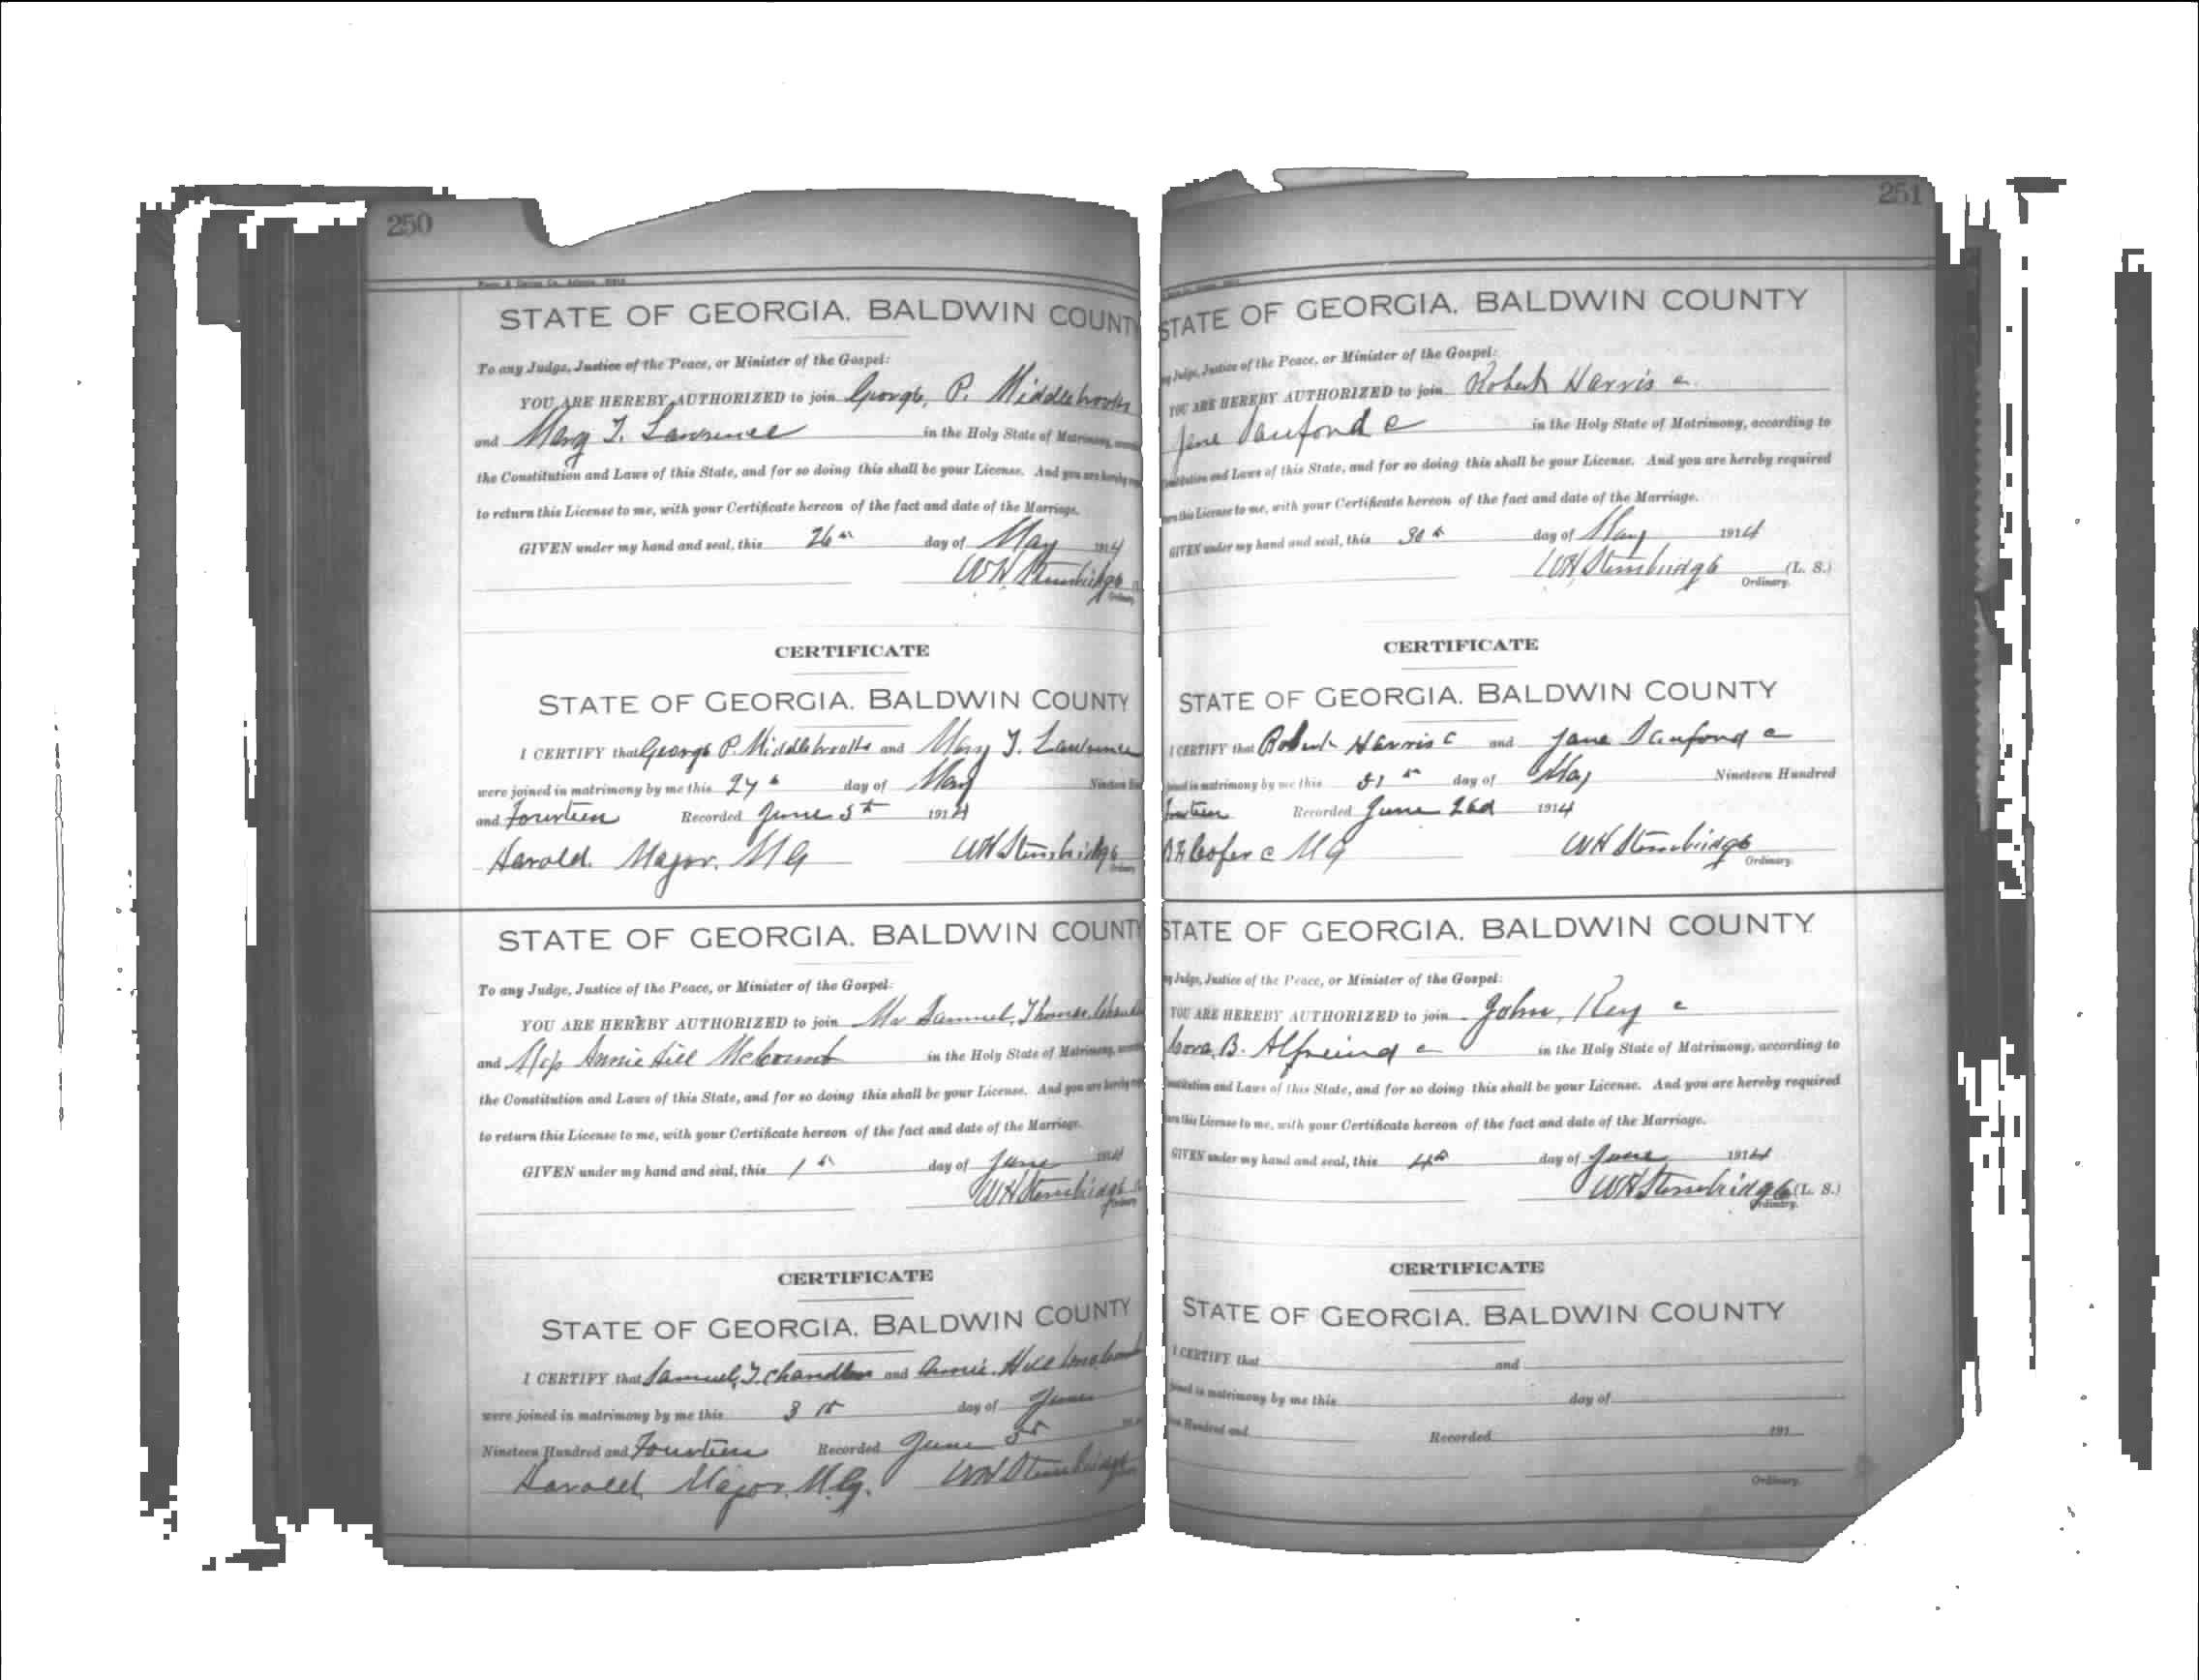 250
STATE OF GEORGIA. BALDWIN COUNT
To any Judge, Justice of the Peace, or Minister of the Gospel:
YOU ARE HEREBY AUTHORIZED to join George, P. Middlebrooks
and Mary T. Lawrence in the Holy State of Matrimony,
the Constitution and Laws of this State, and for so doing this shall be your License. And you are hereby
to return this License to me, with your Certificate hereon of the fact and date of the Marriage.
GIVEN under my hand and seal, this 26th day of May 1914
WH Stembridge
Ordinary
CERTIFICATE
STATE OF GEORGIA. BALDWIN COUNTY
I CERTIFY that George P. Middlebrooks and Mary T. Lawrence
were joined in matrimony by me this 27th day of May Nineteen
and Fourteen Recorded June 5th 1914
Harold. Major. MG WH Stembridge
Ordinary
STATE OF GEORGIA. BALDWIN COUNTY
To any Judge, Justice of the Peace, or Minister of the Gospel:
YOU ARE HEREBY AUTHORIZED to join Mr Samuel, Thomas,
and Miss Annie Hill in the Holy State of Matrimony,
the Constitution and Laws of this State, and for so doing this shall be your License. And you are hereby
to return this License to me, with your Certificate hereon of the fact and date of the Marriage.
GIVEN under my hand and seal, this 1st day of June 1914
WH Stembridge
CERTIFICATE
STATE OF GEORGIA. BALDWIN COUNTY
I CERTIFY that Samuel, T. Chandler and Annie. Hill
were joined in matrimony by me this 3 day of June
Nineteen Hundred and Fourteen Recorded June 5
Harold Major. M.G. WH Stembridge
251
STATE OF GEORGIA. BALDWIN COUNTY
Judge, Justice of the Peace, or Minister of the Gospel:
YOU ARE HEREBY AUTHORIZED to join Robert Harris c.
Jane Sanford c in the Holy State of Matrimony, according to
and Laws of this State, and for so doing this shall be your License. And you are hereby required
this License to me, with your Certificate hereon of the fact and date of the Marriage.
GIVEN under my hand and seal, this 30th day of May 1914
WH Stembridge (L. S.)
Ordinary.
CERTIFICATE
STATE OF GEORGIA. BALDWIN COUNTY
I CERTIFY that Robert Harris c and Jane Sanford c
joined in matrimony by me this 31st day of May Nineteen Hundred
Recorded June 1914
Cofer c MG WH Stembridge
Ordinary.
STATE OF GEORGIA. BALDWIN COUNTY
Judge, Justice of the Peace, or Minister of the Gospel:
YOU ARE HEREBY AUTHORIZED to join John, Key c
Cora, B. Alfriend c in the Holy State of Matrimony, according to
and Laws of this State, and for so doing this shall be your License. And you are hereby required
this License to me, with your Certificate hereon of the fact and date of the Marriage.
GIVEN under my hand and seal, this 4th day of June 1914
WH Stembridge (L. S.)
Ordinary.
CERTIFICATE
STATE OF GEORGIA. BALDWIN COUNTY
I CERTIFY that and
joined in matrimony by me this day of
Hundred and Recorded 191
Ordinary.